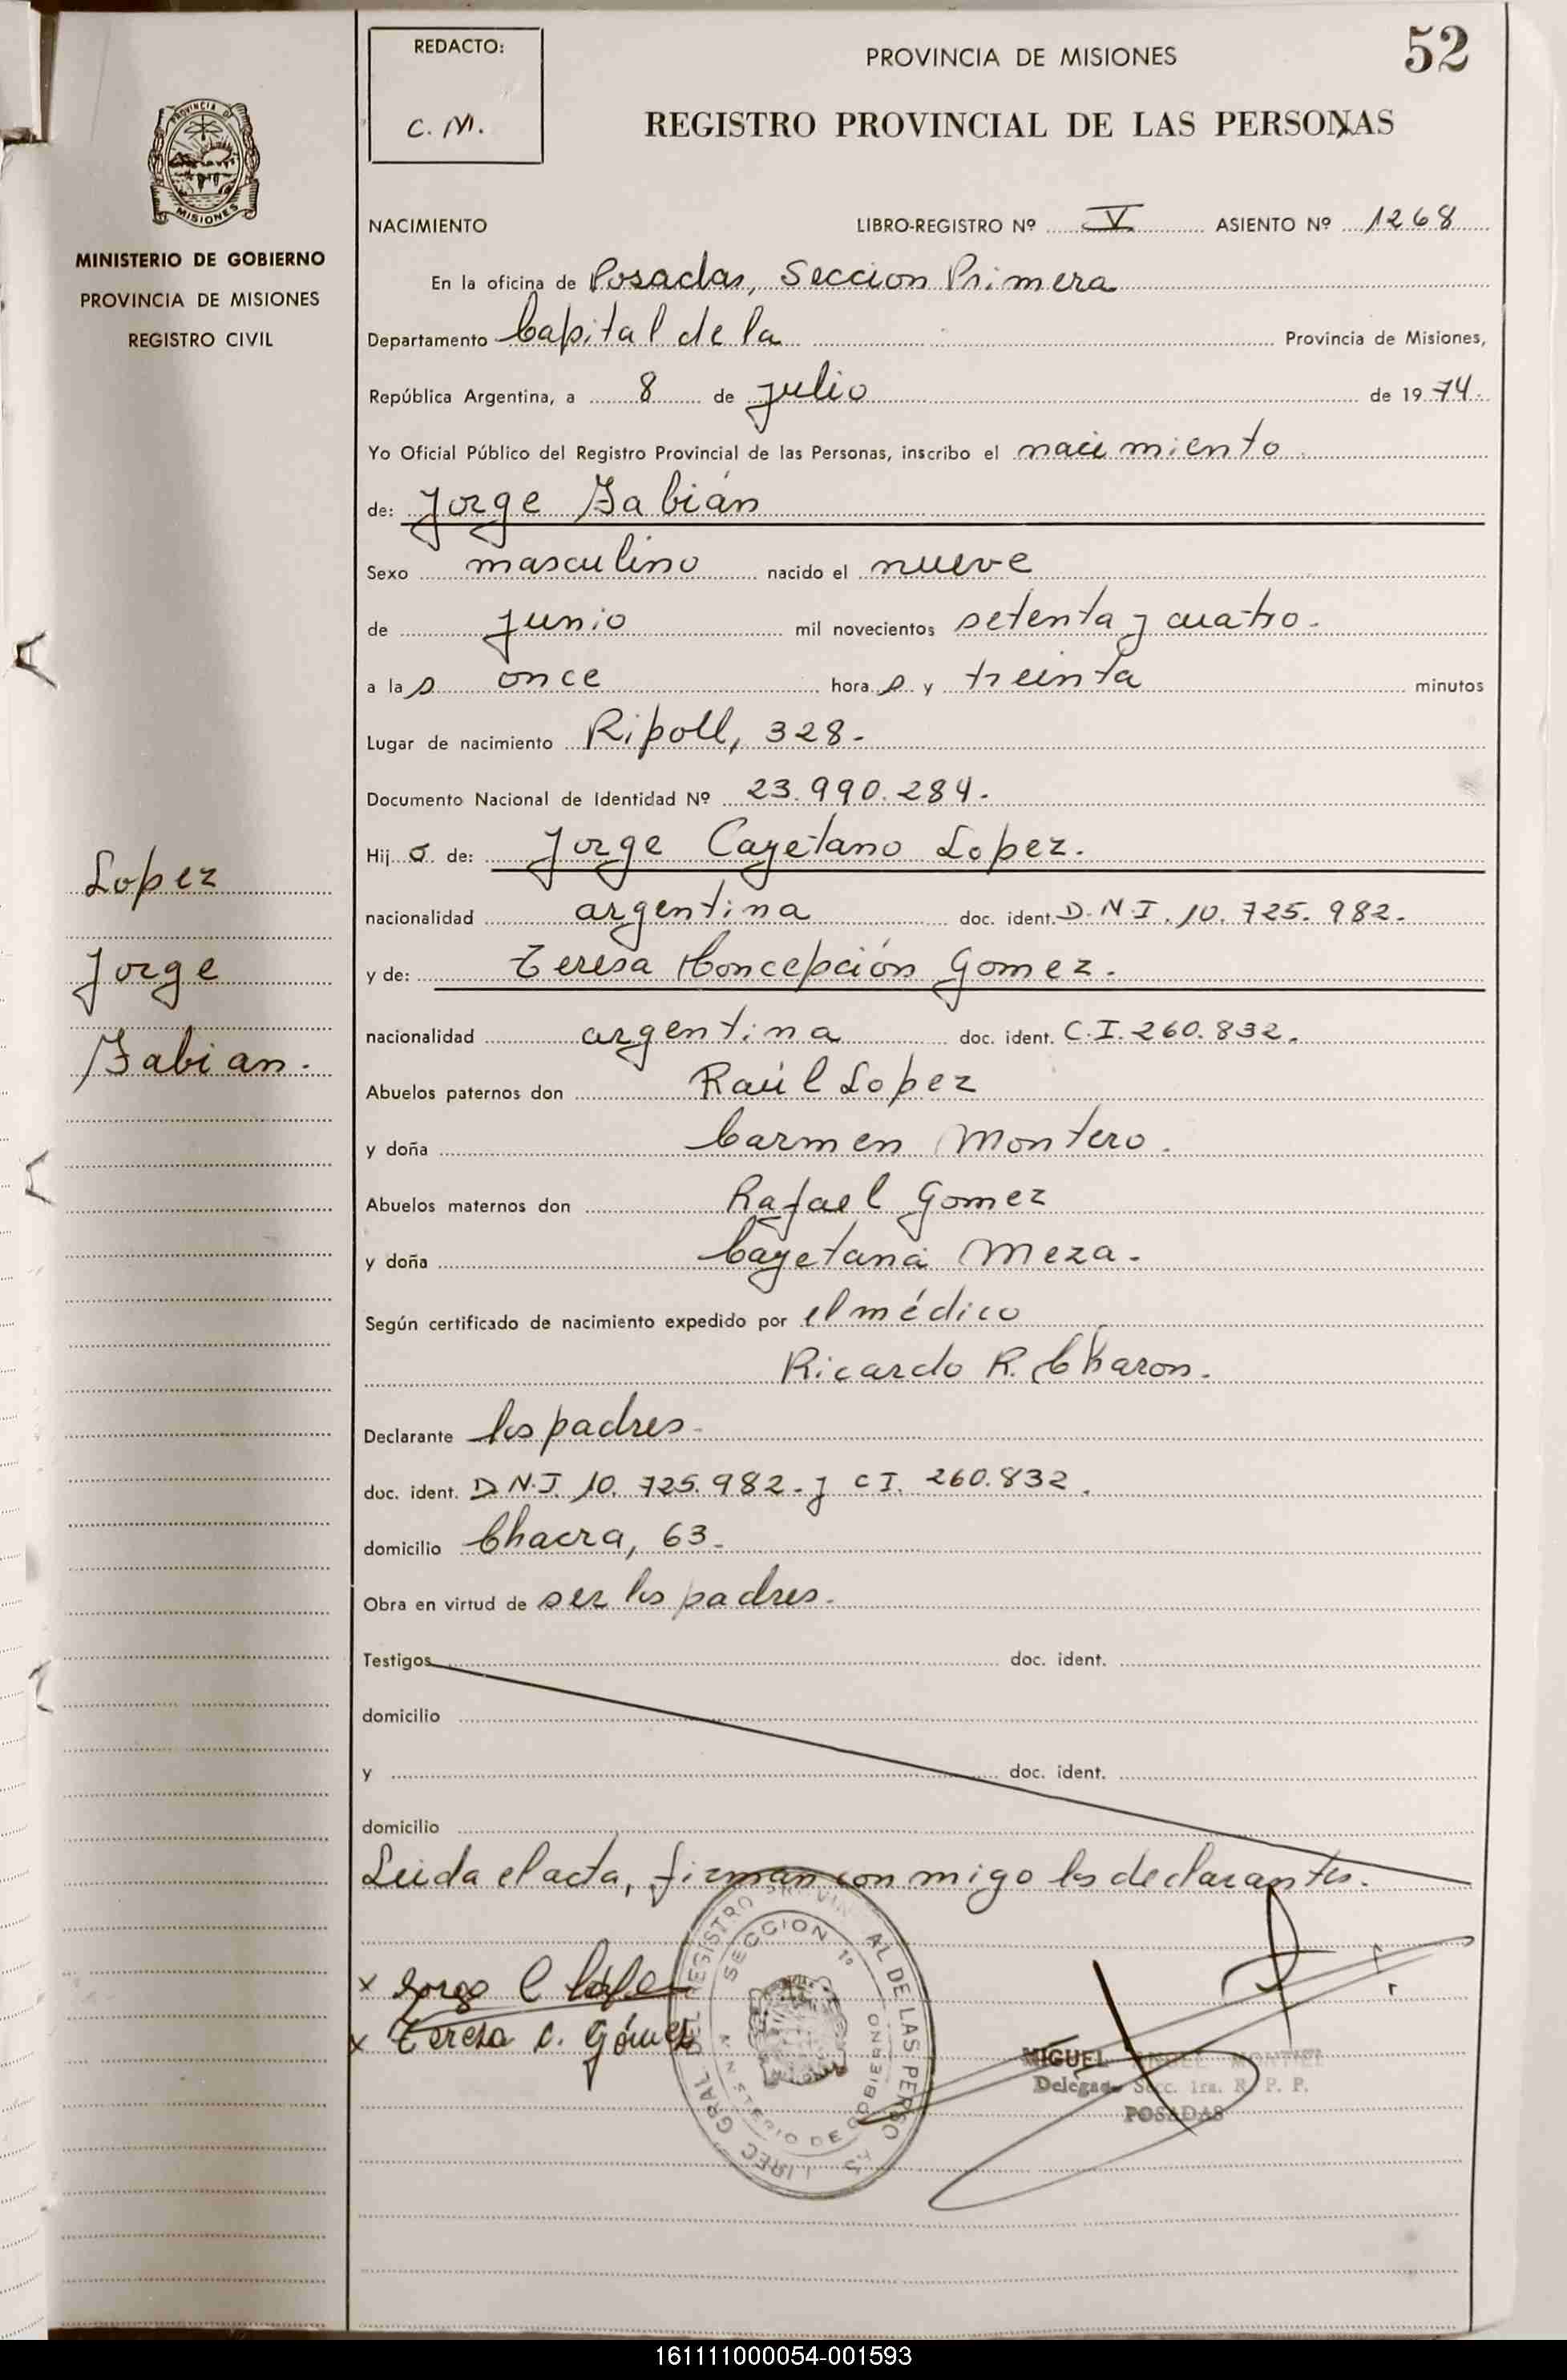 REDACTO:
C. M.
PROVINCIA DE MISIONES
52
REGISTRO PROVINCIAL DE LAS PERSONAS
PROVINCIA DE
MISIONES
MINISTERIO DE GOBIERNO
PROVINCIA DE MISIONES
REGISTRO CIVIL
NACIMIENTO LIBRO-REGISTRO Nº V ASIENTO Nº 1268
En la oficina de Posadas, Seccion Primera
Departamento Capital de la Provincia de Misiones,
República Argentina, a 8 de julio de 1974.
Yo Oficial Público del Registro Provincial de las Personas, inscribo el nacimiento
de: Jorge Fabián
Sexo masculino nacido el nueve
de junio mil novecientos setenta y cuatro.
a las once horas y treinta minutos
Lugar de nacimiento Ripoll, 328.
Documento Nacional de Identidad Nº 23.990.284.
Hijo de: Jorge Cayetano Lopez.
nacionalidad argentina doc. ident. D.N.I. 10.725.982.
y de: Teresa Concepción Gomez.
nacionalidad argentina doc. ident. C.I. 260.832.
Abuelos paternos don Raúl Lopez
y doña Carmen Montero.
Abuelos maternos don Rafael Gomez
y doña Cayetana Meza.
Según certificado de nacimiento expedido por el médico
Ricardo R. Charon.
Declarante los padres.
doc. ident. D.N.I. 10.725.982. y CI. 260.832.
domicilio Chacra, 63.
Obra en virtud de ser los padres.
Testigos doc. ident.
domicilio
y doc. ident.
domicilio
Leida el acta, firman conmigo los declarantes.
Lopez
Jorge
Fabian.
x Jorge C López
x Teresa C. Gómez
SECCION 1º
MINISTERIO DE GOBIERNO
MIGUEL ANGEL MONTIEL
Delegado Secc. 1ra. R. P. P.
POSADAS
161111000054-001593